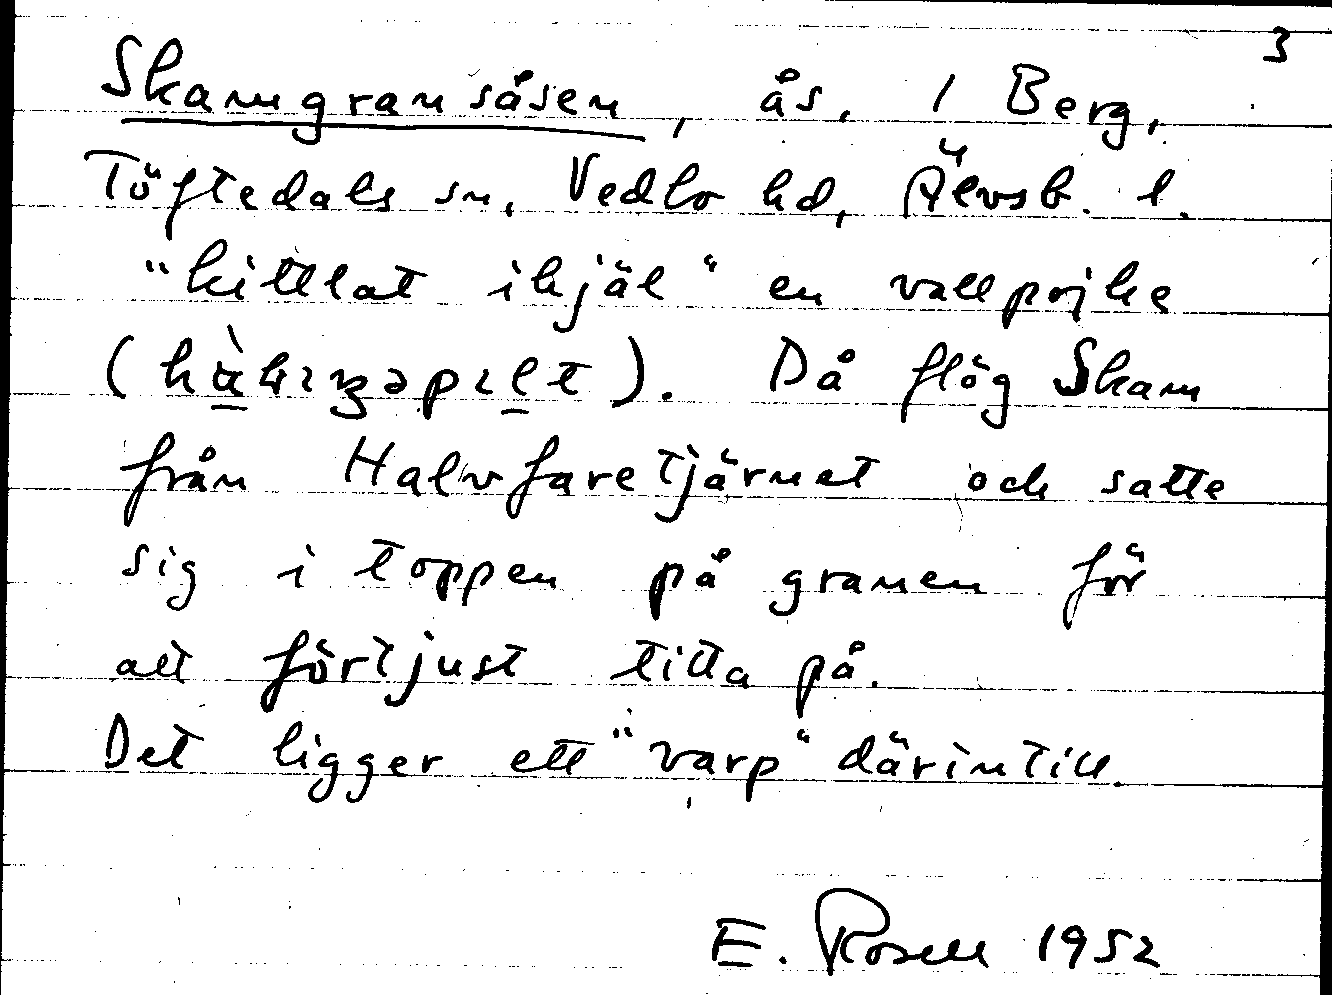 3
Skamgransåsen, ås, 1 Berg,
Töftedals sn, Vedbo hd, Älvsb. l.
"kittlat ihjäl" en vallpojke
Då flög Skam
från Halvfaretjärnet och satte
sig i toppen på granen för
att förtjust titta på.
Det ligger ett "varp" därintill.
E. Rosell 1952